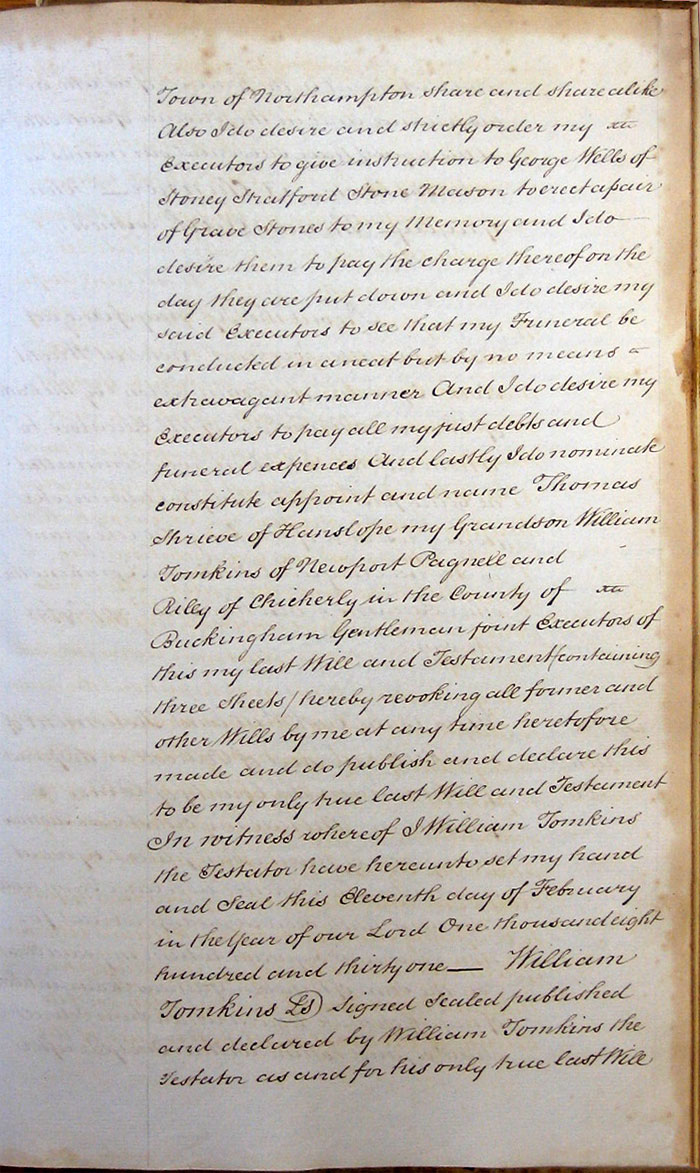 Town of Northampton share and share alike
Also I do desire and strictly order my
Executors to give instruction to George Wells of
Stoney Stratford Stone Mason to erect a pair
of Grave Stones to my Memory and I do —
desire them to pay the charge thereof on the
day they are put down and I do desire my
said Executors to see that my Funeral be
conducted in a neat but by no means
extravagant manner And I do desire my
Executors to pay all my just debts and
funeral expences And lastly I do nominate
constitute appoint and name Thomas
Shrieve of Hanslope my Grandson William
Tomkins of Newport Pagnell and
Riley of Chicherly in the County of
Buckingham Gentleman joint Executors of
this my last Will and Testament (containing
three Sheets / hereby revoking all former and
other Wills by me at any time heretofore
made and do publish and declare this
to be my only true last Will and Testament
In witness whereof I William Tomkins
the Testator have hereunto set my hand
and Seal this Eleventh day of February
in the Year of our Lord One thousand eight
hundred and thirty one — William
Tomkins LS Signed Sealed published
and declared by William Tomkins the
Testator as and for his only true last Will